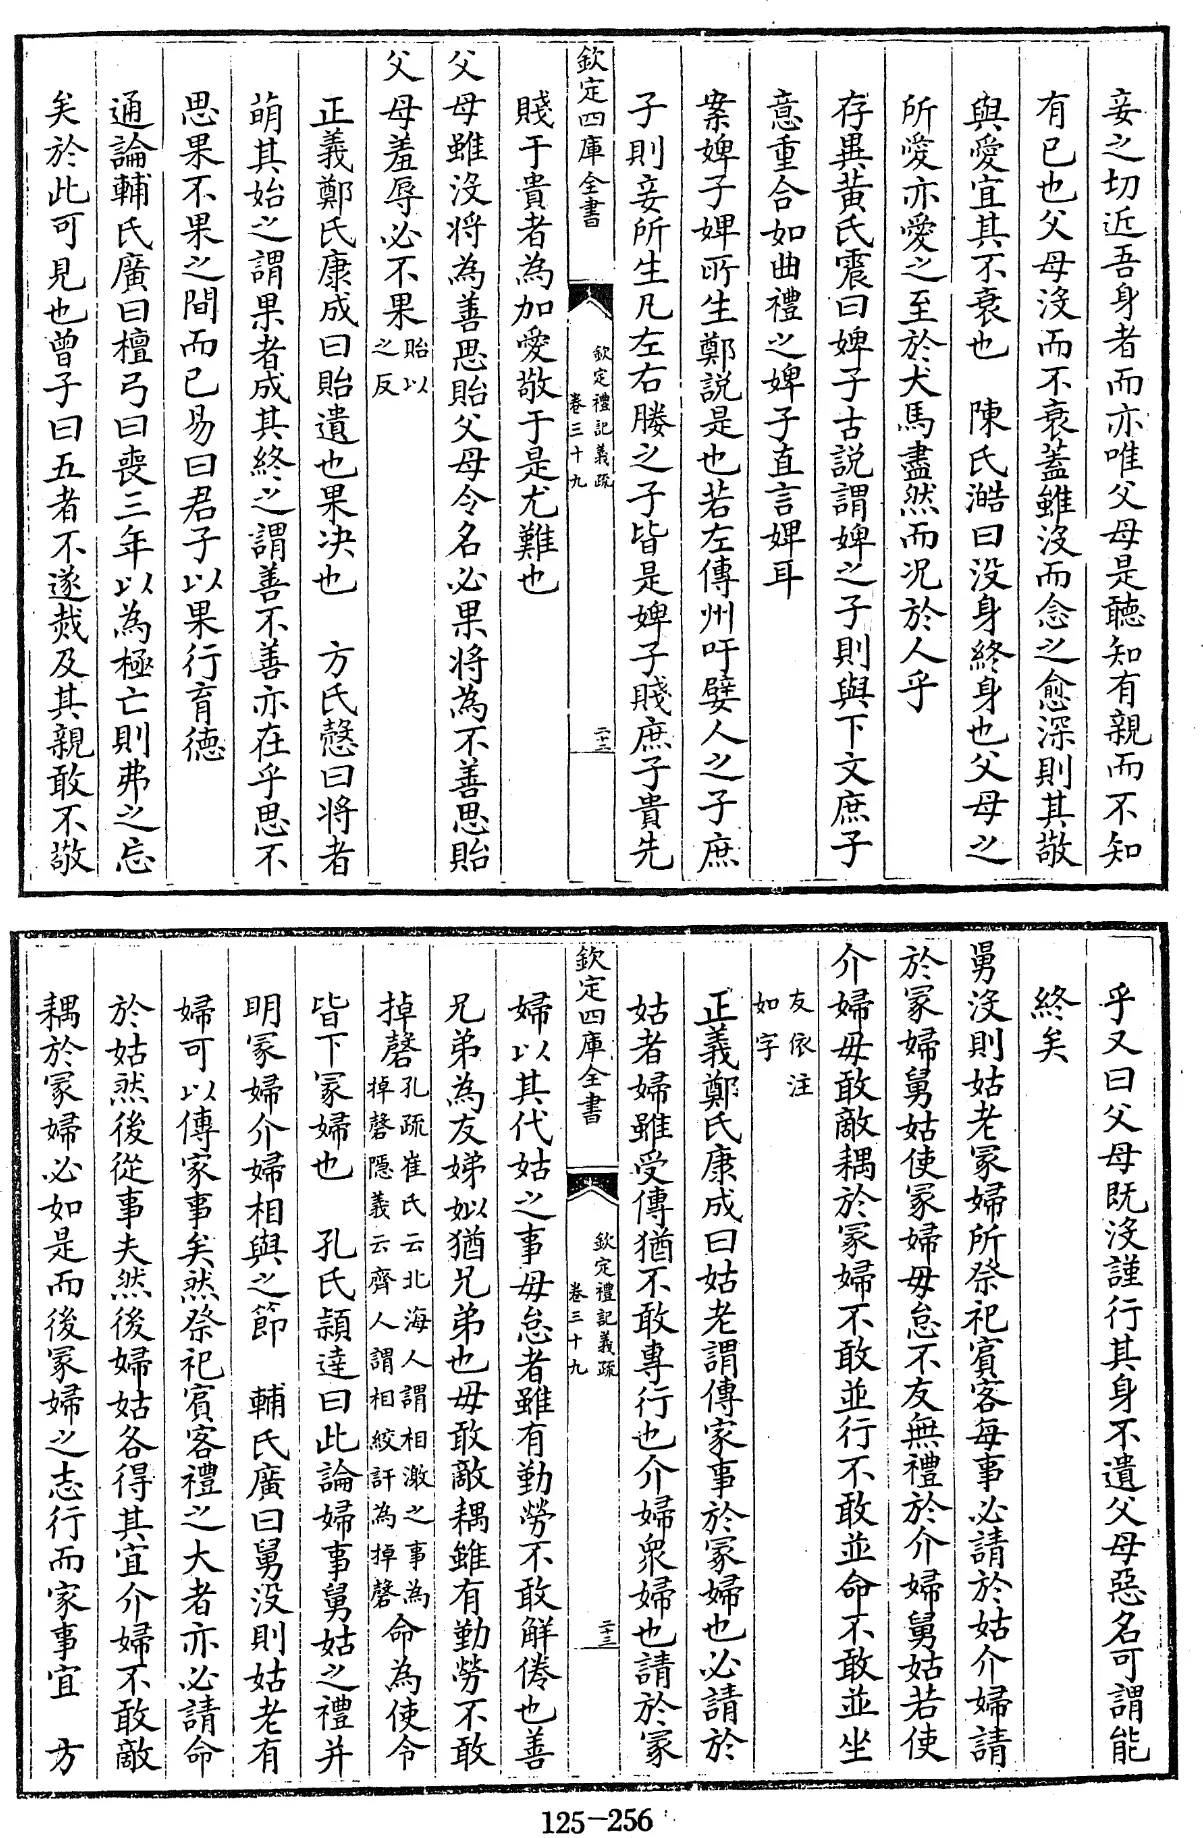 妾之切近吾身者而亦唯父母是聽知有親而不知
有已也父母沒而不衰蓋雖沒而念之愈深則其敬
與愛宜其不衰也　陳氏澔曰没身終身也父母之
所愛亦愛之至於犬馬盡然而况於人乎
存異黃氏震曰婢子古説謂婢之子則與下文庶子
意重合如曲禮之婢子直言婢耳
案婢子婢所生鄭説是也若左傳州吁嬖人之子庶
子則妾所生凡左右媵之子皆是婢子賤庶子貴先
欽定四庫全書
欽定禮記義疏
卷三十九
二十二
賤于貴者為加愛敬于是尤難也
父母雖沒將為善思貽父母令名必果將為不善思貽
父母羞辱必不果貽以
之反
正義鄭氏康成曰貽遺也果决也　方氏慤曰將者
萌其始之謂果者成其終之謂善不善亦在乎思不
思果不果之間而已易曰君子以果行育德
通論輔氏廣曰檀弓曰喪三年以為極亡則弗之忘
矣於此可見也曾子曰五者不遂烖及其親敢不敬
乎又曰父母既沒謹行其身不遺父母惡名可謂能
終矣
舅沒則姑老冢婦所祭祀賓客每事必請於姑介婦請
於冢婦舅姑使冢婦毋怠不友無禮於介婦舅姑若使
介婦毋敢敵耦於冢婦不敢並行不敢並命不敢並坐
友依注
如字
正義鄭氏康成曰姑老謂傳家事於冢婦也必請於
姑者婦雖受傳猶不敢專行也介婦衆婦也請於冢
欽定四庫全書
欽定禮記義疏
卷三十九
二十三
婦以其代姑之事毋怠者雖有勤勞不敢解倦也善
兄弟為友娣姒猶兄弟也毋敢敵耦雖有勤勞不敢
掉磬孔疏崔氏云北海人謂相激之事為
掉磬隱義云齊人謂相絞訐為掉磬命為使令
皆下冢婦也　孔氏頴逹曰此論婦事舅姑之禮并
明冢婦介婦相與之節　輔氏廣曰舅没則姑老有
婦可以傳家事矣然祭祀賓客禮之大者亦必請命
於姑然後從事夫然後婦姑各得其宜介婦不敢敵
耦於冢婦必如是而後冢婦之志行而家事宜　方
125-256